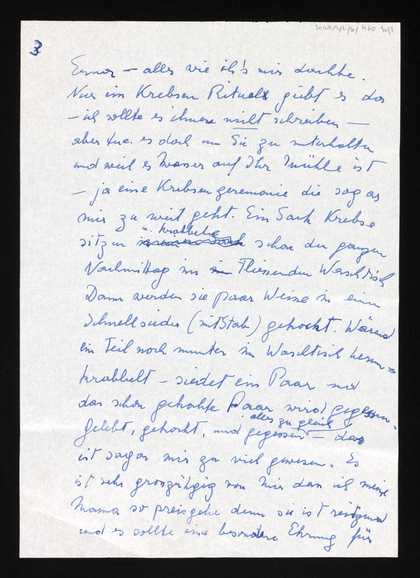 3
– alles wie ich's mir dachte.
Nur im Krebsen Rituals giebt es das
– ich sollte es ihnen nicht schreiben –
aber tue es doch um Sie zu unterhalten
und weil es Wasser auf Ihr Mühle ist
– ja eine Krebsenzeremonie die sogar
mir zu weit geht. Ein Sack Krebse
sitzen u. krabbeln schon den ganzen
Nachmittag im fliesenden Waschtisch
Dann werden sie paar Weise in einem
Schnellsieder (mit Stab) gekocht. Wärend
ein Teil noch munter im Waschtisch herum-
krabbelt – siedet ein Paar und
das schon gekochte Paar wird gegessen.
gelebt, gekocht, und gegessen alles zu gleich – das
ist sogar mir zu viel gewesen. Es
ist sehr groszügig von mir dass ich meine
Mama so preisgebe denn sie ist reizend
und es sollte eine besondere Ehrung für